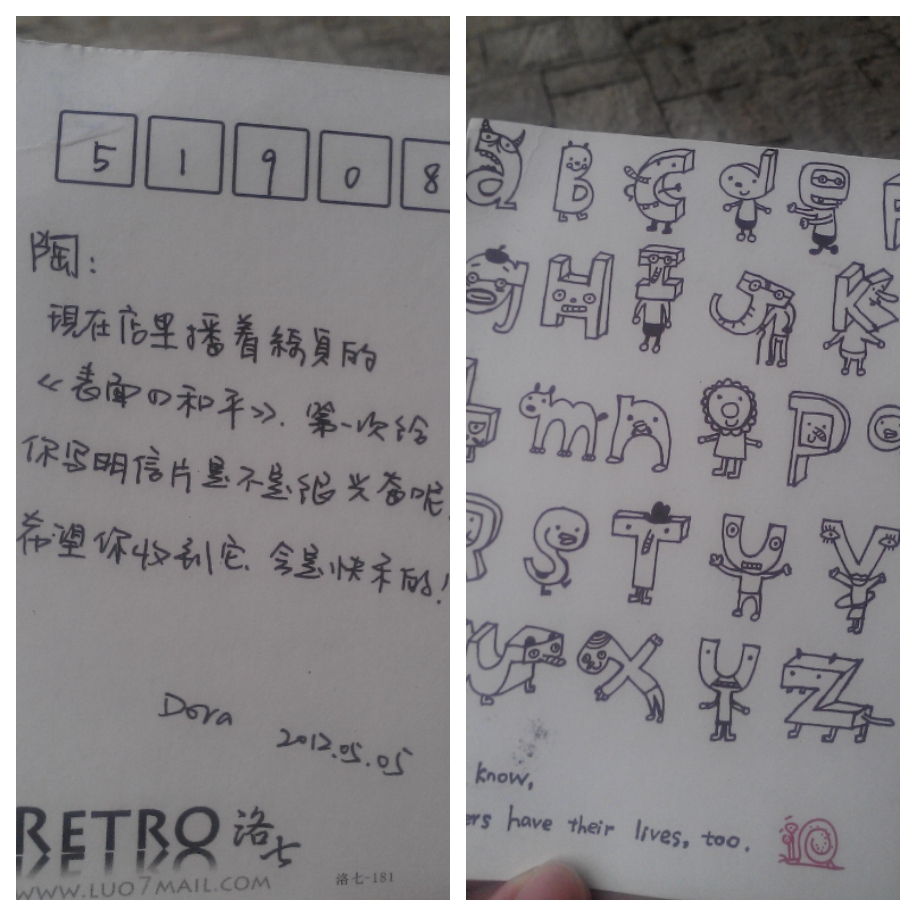 5 1 9 0 8
陶:
現在店里播着縞員的
《表面の和平》. 第一次给
你写明信片是不是很兴奋呢
希望你收到它, 会是快乐的!
Dora
2012.05.05
RETRO 洛七
WWW.LUO7MAIL.COM
洛七-181
a B C d e F
g H I J K
L m n o P Q
R S T U V
W X Y Z
know,
ers have their lives, too.